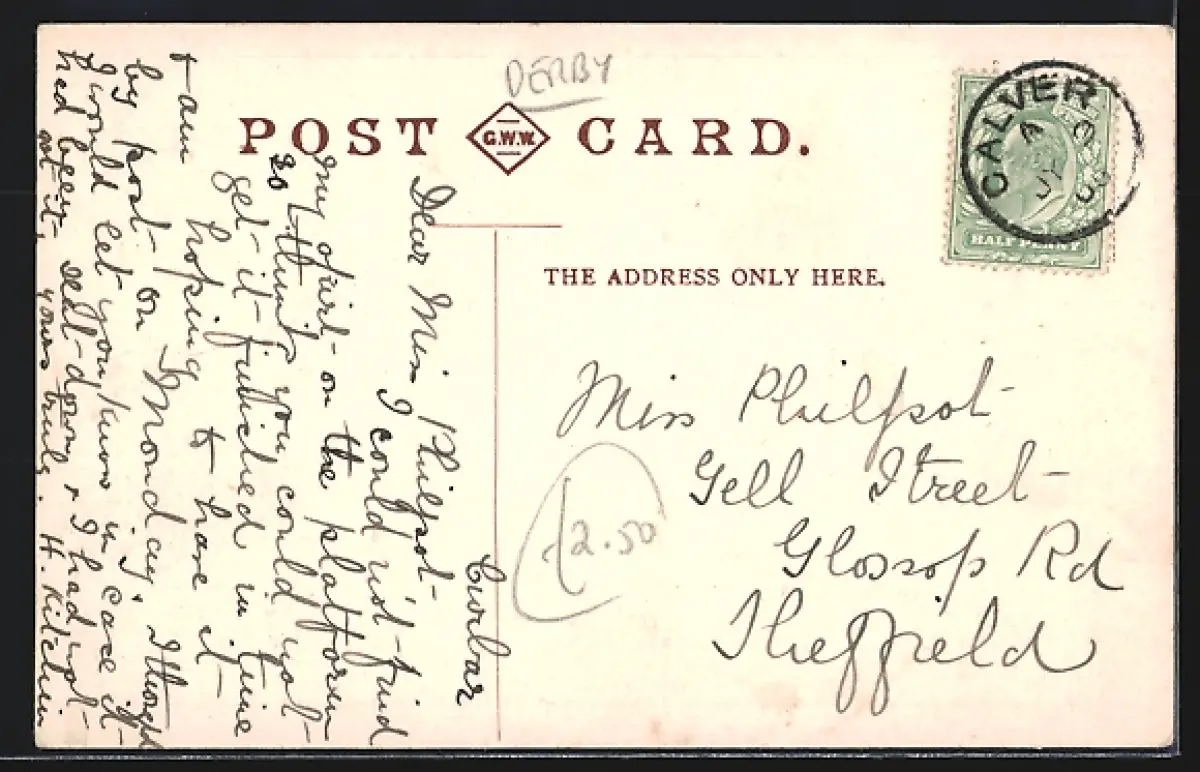 DERBY
POST G.W.W. CARD.
CALVER
A
JY
HALFPENNY
THE ADDRESS ONLY HERE.
Miss Philpot
Gell Street
Glossop Rd
Sheffield
2.50
Curbar
Dear Miss Philpot
I could not find
my skirt on the platform
so I think you could not
get it finished in time
hoping to have it
by post on Monday. I thought
I would let you know in case it
had been sent down & I had not
got it, yours truly. H. Kitchin